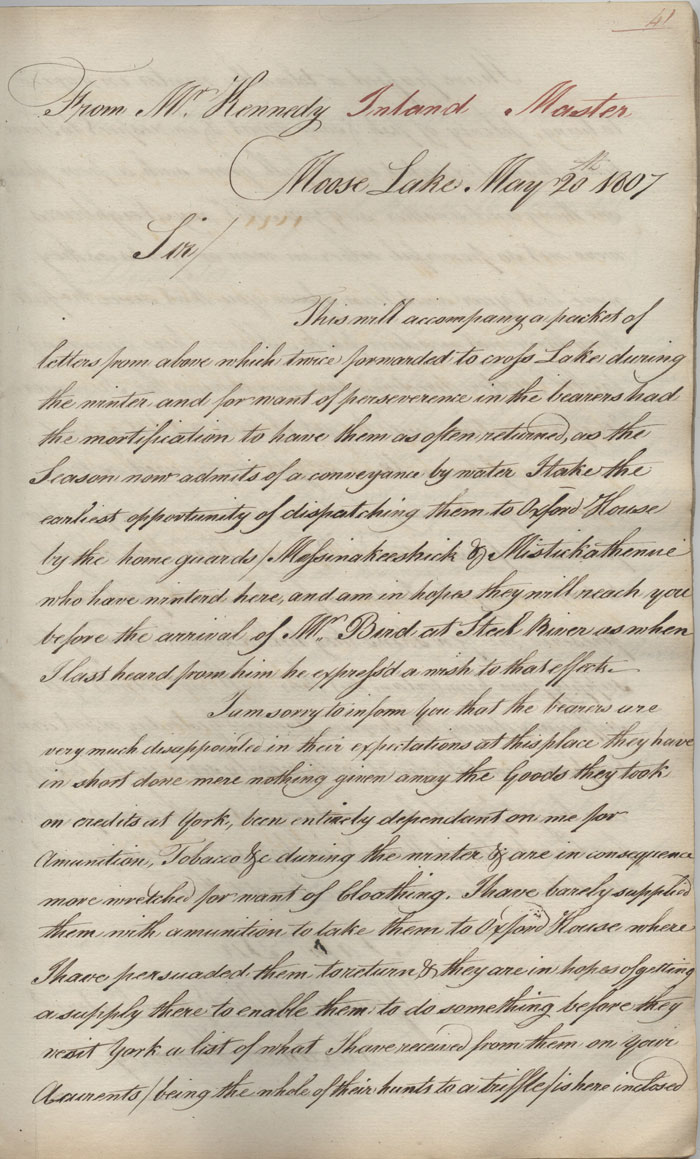 41
From Mr. Kennedy Inland Master
Moose Lake May 20th 1807
Sir/
This will accompany a packet of
letters from above which twice forwarded to cross Lake during
the winter and for want of perseverence in the bearers had
the mortification to have them as often returned, as the
Season now admits of a conveyance by water I take the
earliest opportunity of dispatching them to Oxford House
by the home guards/Messinakeeshick & Mistickathenue
who have winterd here, and am in hopes they will reach you
before the arrival of Mr. Bird at Steel River as when
I last heard from him he express'd a wish to that effect.
I am sorry to inform You that the bearers are
very much disappointed in their expectations at this place they have
in short done mere nothing given away the Goods they took
on credits at York, been entirely dependant on me for
Amunition, Tobacco &c during the winter & are in consequence
more wretched for want of Cloathing. I have barely supplied
them with amunition to take them to Oxford House where
I have persuaded them to return & they are in hopes of getting
a supply there to enable them to do something before they
vesit York a list of what I have received from them on Your
Acurents/being the whole of their hunts to a triffle/is here inclosed